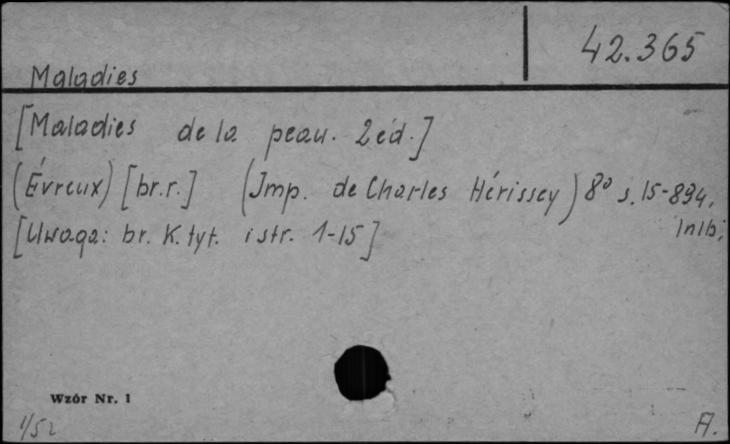 42.365
Maladies
[Maladies de la peau. 2 éd.]
(Évreux) [br.r.] (Jmp. de Charles Hérissey) 8° s. 15-894,
1nlb;
[Uwaga: br. K. tyt. i str. 1-15]
Wzór Nr. 1
1/52
A.